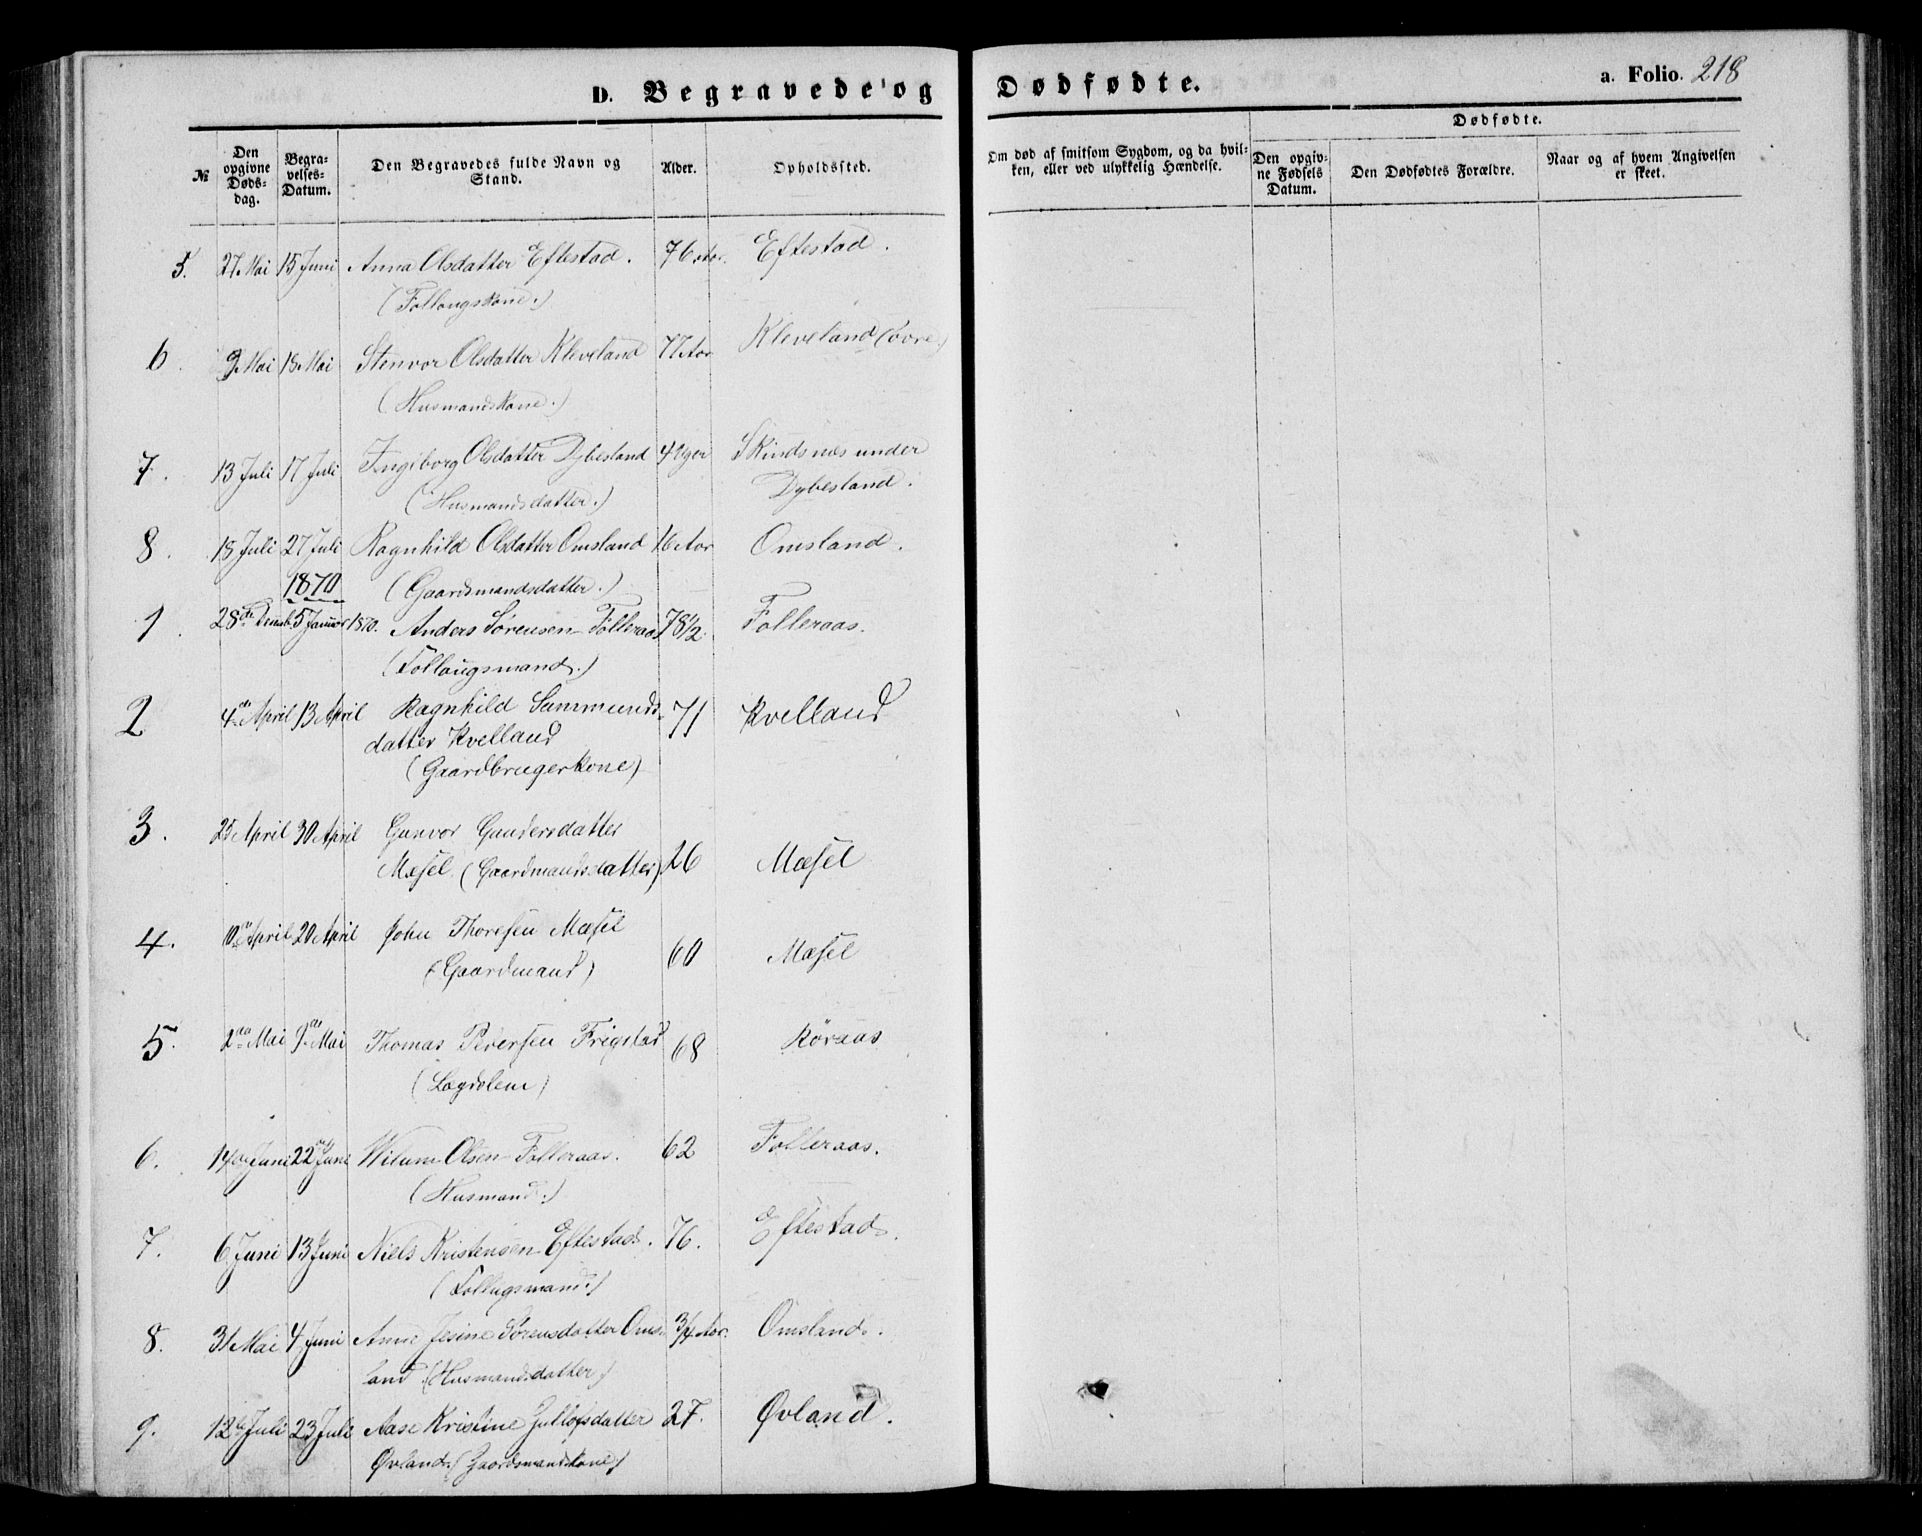 D. Begravede og Dødfødte.
a. Folio. 218
№
Den opgivne Døds-dag.
Begra-velses-Datum.
Den Begravedes fulde Navn og Stand.
Alder.
Opholdssted.
Om død af smitsom Sygdom, og da hvil-ken, eller ved ulykkelig Hændelse.
Dødfødte.
Den opgiv-ne Fødsels Datum.
Den Dødfødtes Forældre.
Naar og af hvem Angivelsen er skeet.
5. 27 Mai 15 Juni Anna Olsdatter Eftestad. 76 Aar. Eftestad.
(Follougskone.)
6. 9 Mai 18 Mai Stenvor Olsdatter Kleveland 77 Aar Kleveland (øvre.)
(Husmandskone.)
7. 13 Juli 17 Juli Ingeborg Olsdatter Dybesland 4 Uger Skindsnæs under
(Husmandsdatter.) Dybesland.
8. 18 Juli 27 Juli Ragnhild Olsdatter Omsland 16 Aar Omsland.
1870 (Gaardmandsdatter.)
1. 28de Decmb. 5 Januar 1870. Anders Sørensen Folleraas 78½. Folleraas.
(Follougsmand.)
2 4de April 13 April Ragnhild Sammunds- 71 Kvelland
datter Kvelland
(Gaardbrugerkone)
3. 25 April 30 April Gunvor Gundersdatter
Mæsel. (Gaardmandsdatter) 26 Mæsel
4. 10de April 20 April John Thoresen Mæsel 60 Mæsel
(Gaardmand)
5. 2den Mai 9de Mai Thomas Pedersen Frigstad 68 Røraas
(Lægdslem)
6. 14de Juni 22de Juni Wilum Olsen Folleraas. 62 Folleraas.
(Husmand.)
7. 6 Juni 13 Juni Niels Kristensen Eftestad. 76. Eftestad.
(Follugsmand.)
8. 31 Mai 4 Juni Anne Jesine Sørensdatter Oms- ¾ Aar. Omsland.
land (Husmandsdatter)
9. 12te Juli 23 Juli Aase Kristine Jullofsdatter 27. Øvland.
Øvland. (Gaardsmandskone)